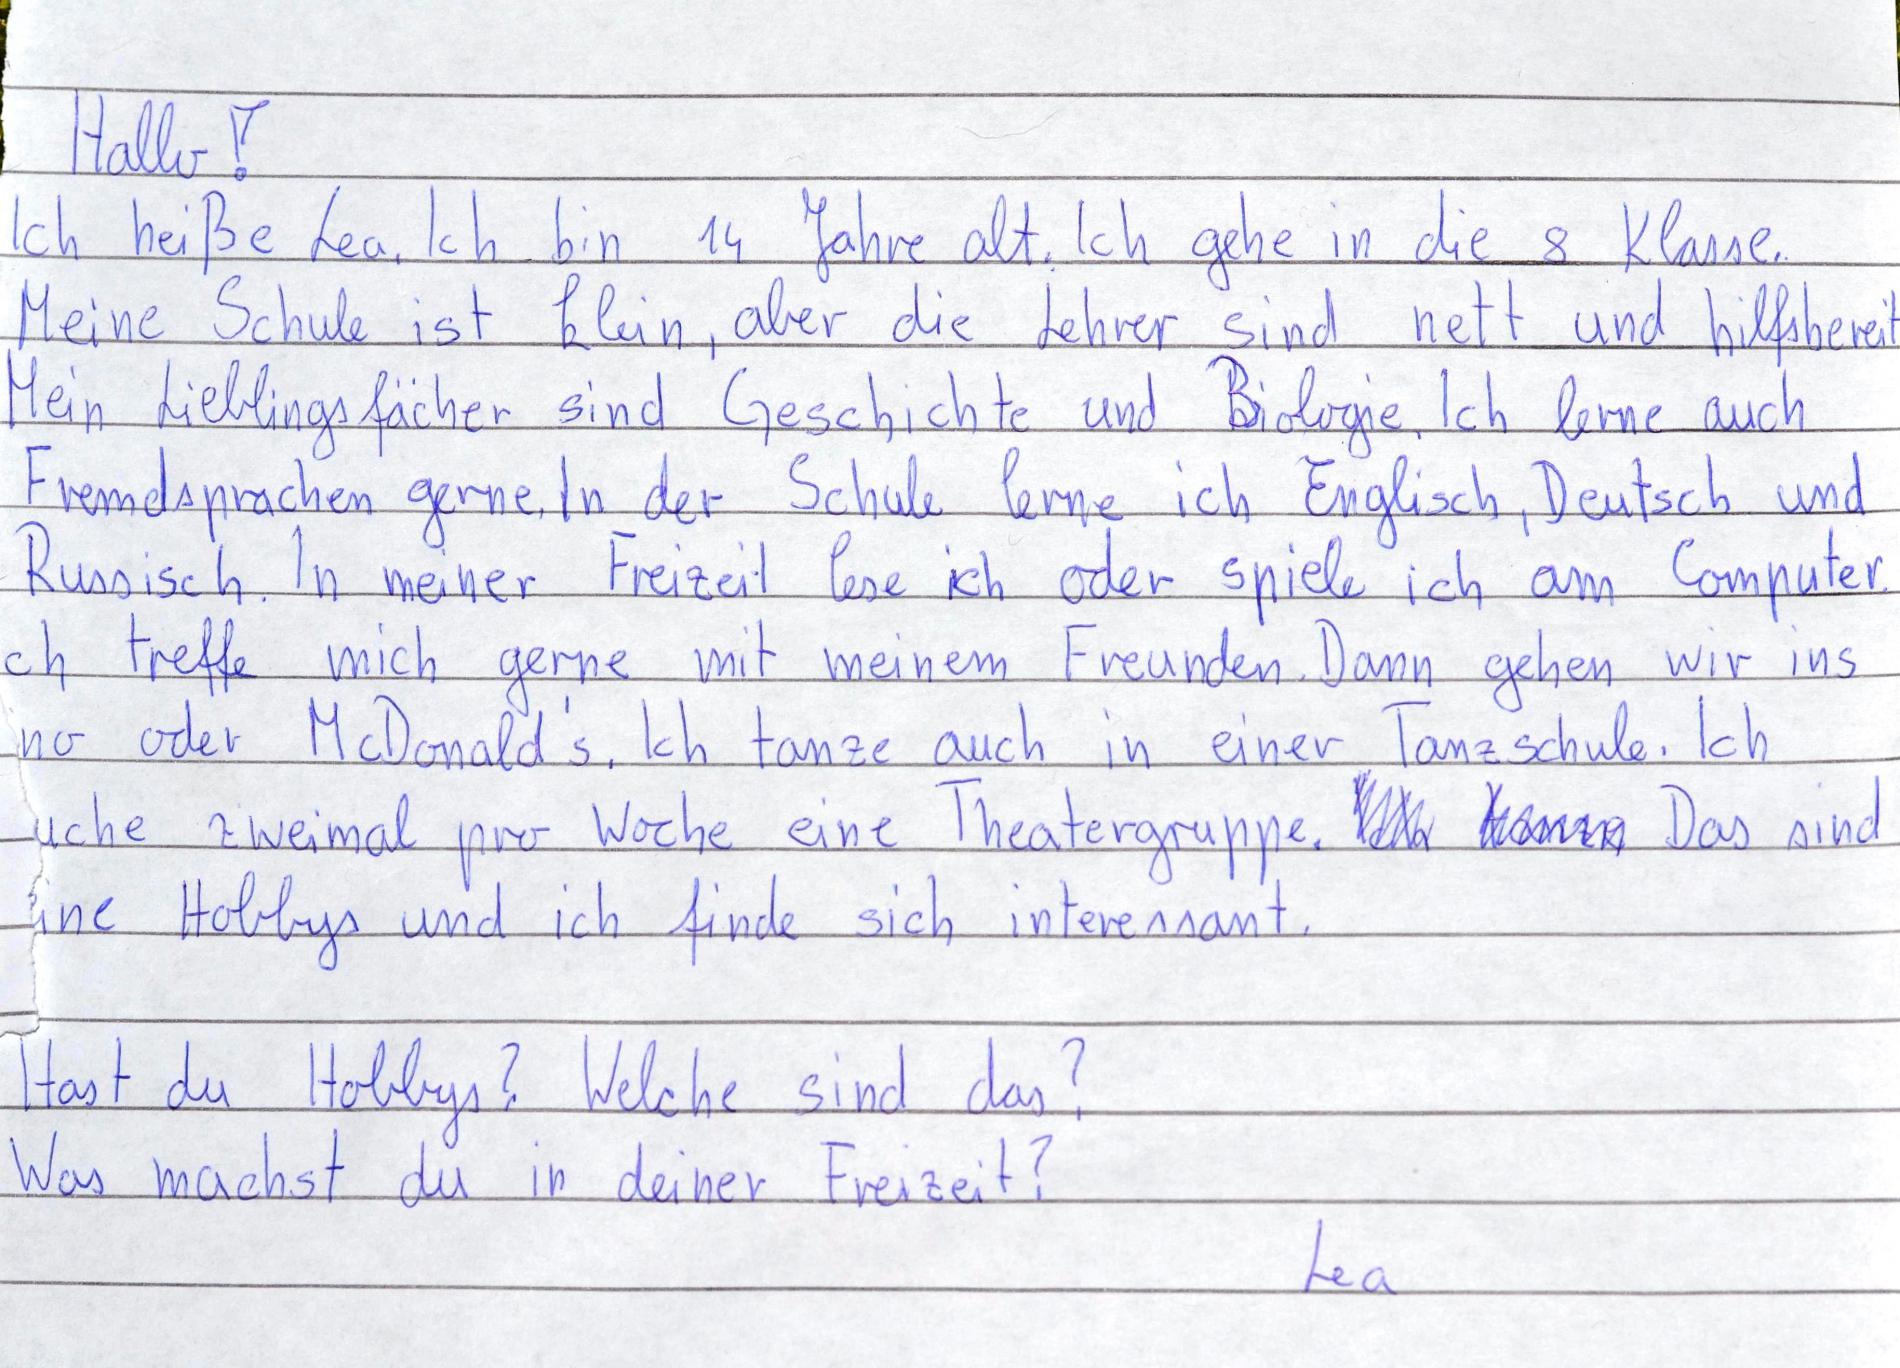 Hallo!
Ich heiße Lea. Ich bin 14 Jahre alt. Ich gehe in die 8 Klasse.
Meine Schule ist klein, aber die Lehrer sind nett und hilfsbereit
Mein Lieblingsfächer sind Geschichte und Biologie. Ich lerne auch
Fremdsprachen gerne. In der Schule lerne ich Englisch, Deutsch und
Russisch. In meiner Freizeit lese ich oder spiele ich am Computer.
ch treffe mich gerne mit meinem Freunden. Dann gehen wir ins
no oder McDonald's. Ich tanze auch in einer Tanzschule. Ich
uche zweimal pro Woche eine Theatergruppe. Das sind
ine Hobbys und ich finde sich interessant.
Hast du Hobbys? Welche sind das?
Was machst du in deiner Freizeit?
Lea